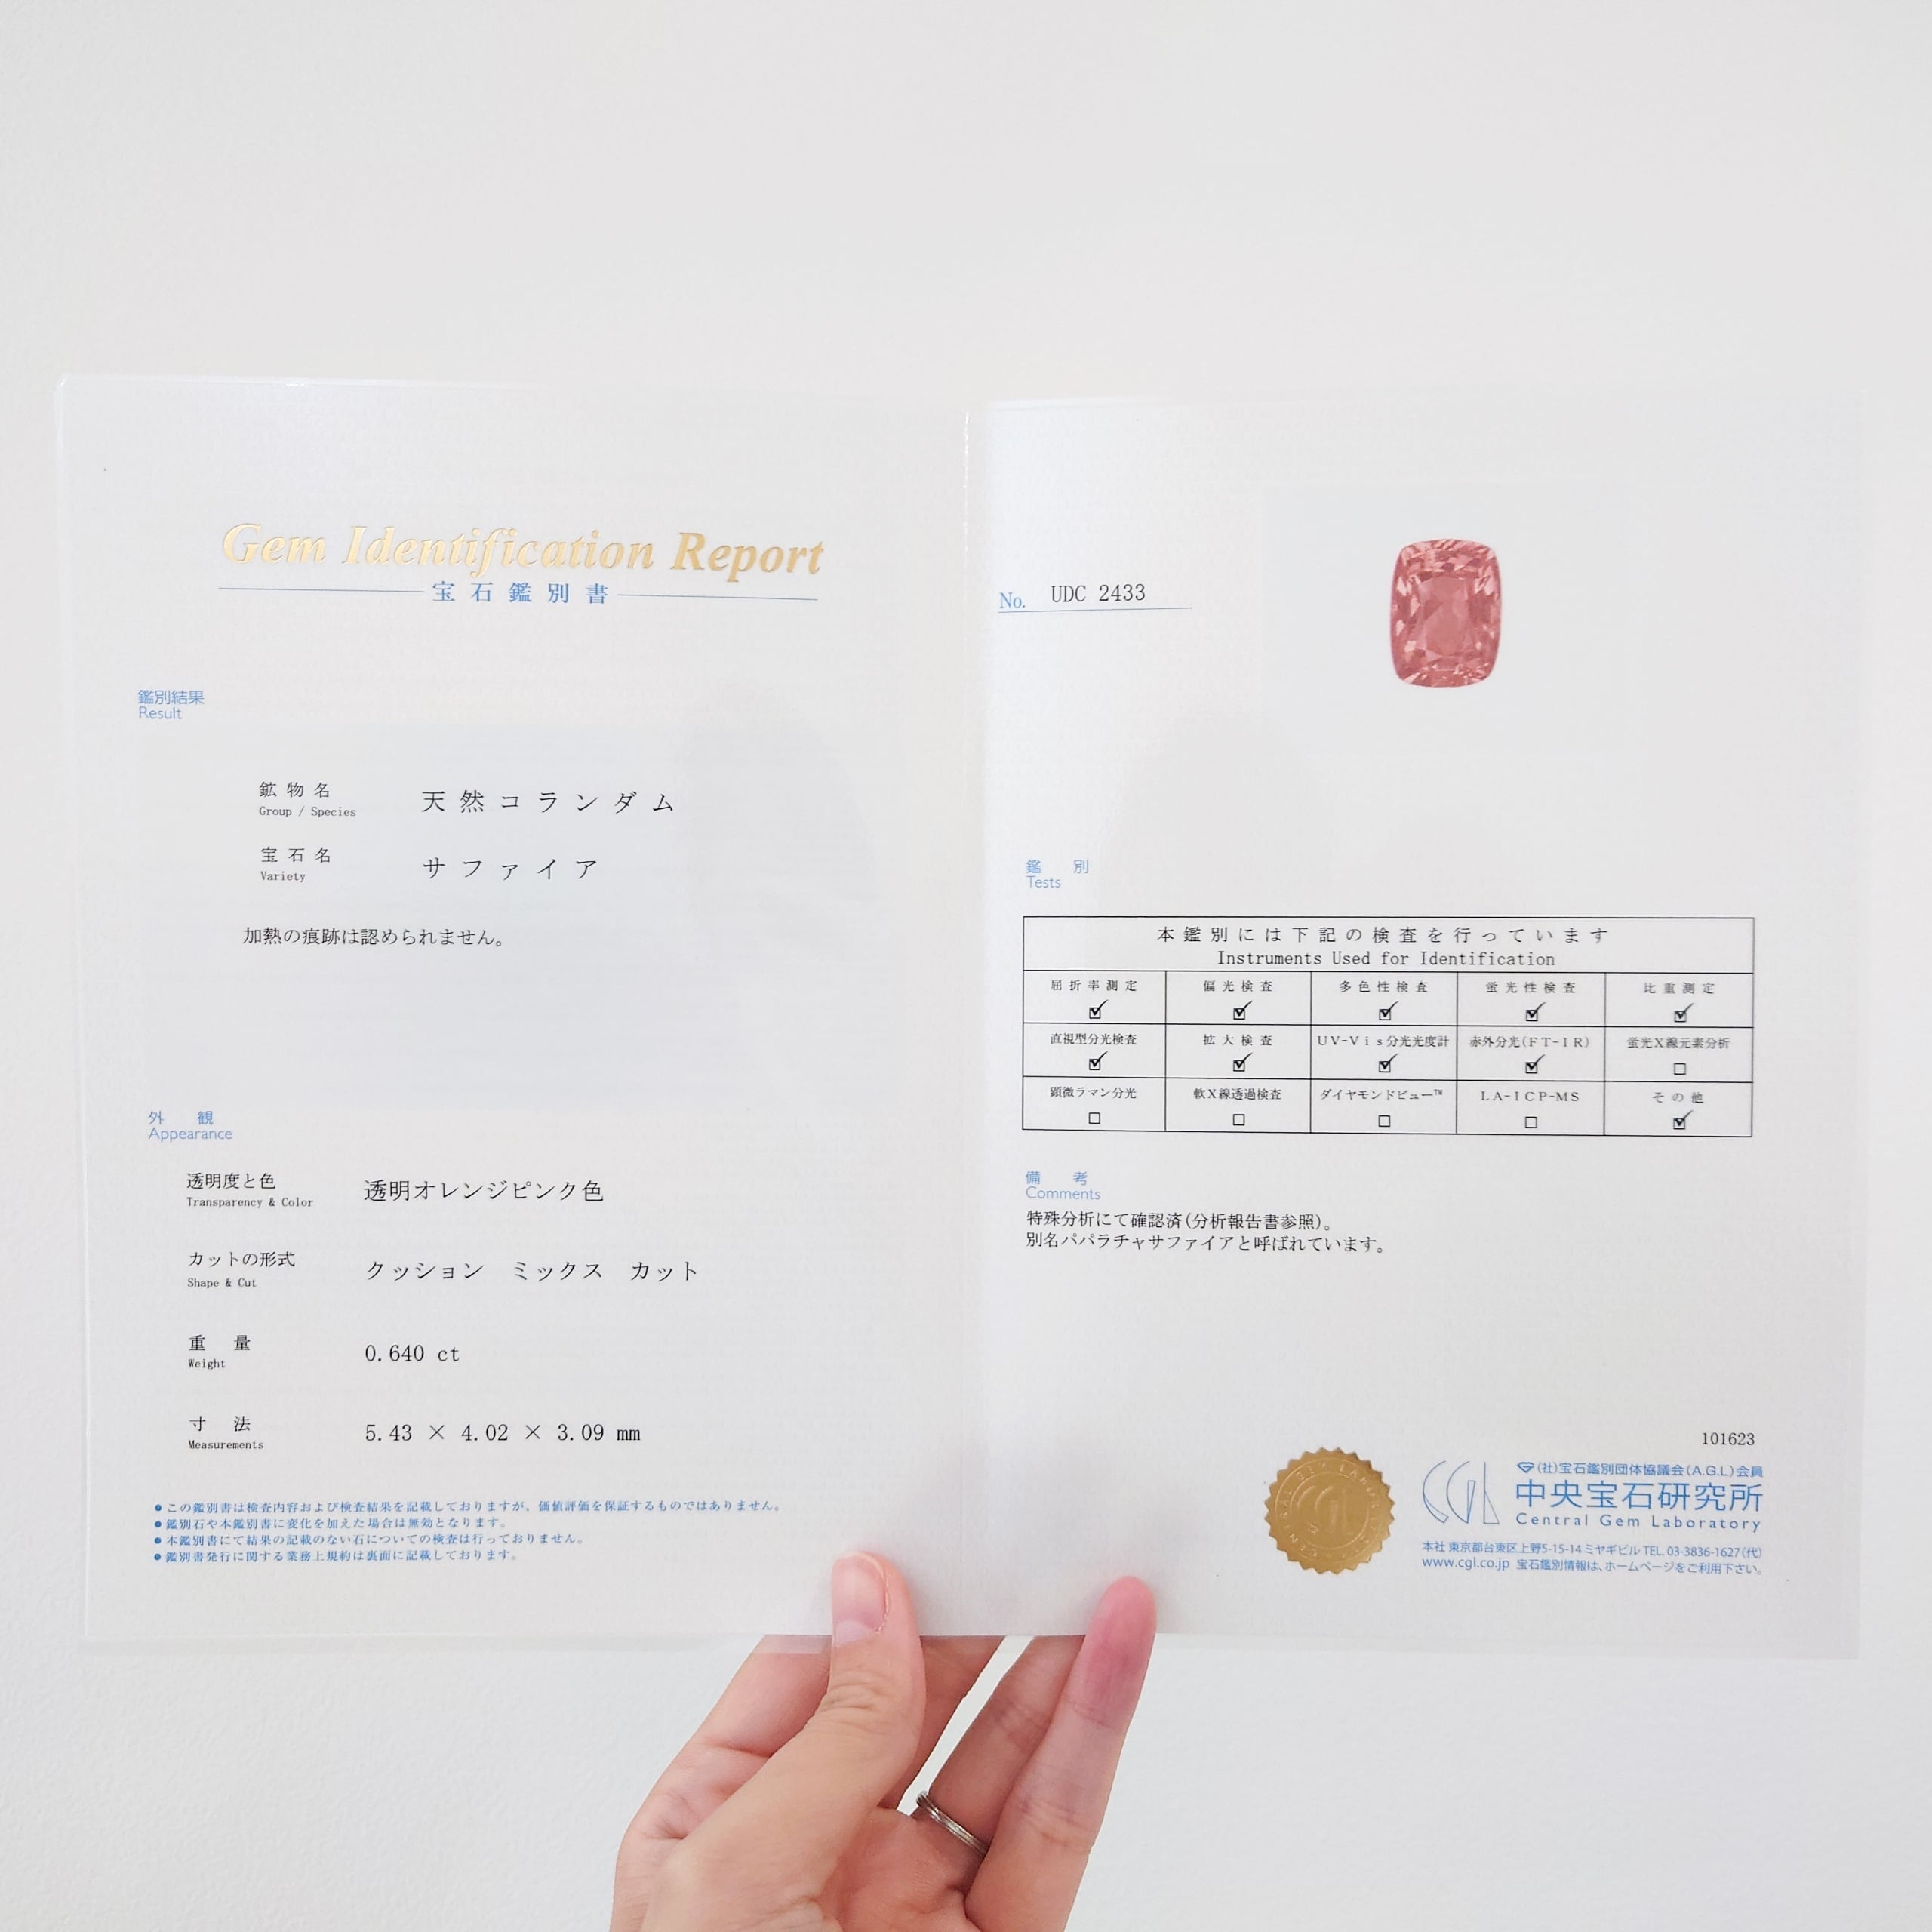 Gem Identification Report
宝石鑑別書
鑑別結果
Result
鉱物名
Group / Species
天然コランダム
宝石名
Variety
サファイア
加熱の痕跡は認められません。
外観
Appearance
透明度と色
Transparency & Color
透明オレンジピンク色
カットの形式
Shape & Cut
クッション ミックス カット
重量
Weight
0.640 ct
寸法
Measurements
5.43 × 4.02 × 3.09 mm
●この鑑別書は検査内容および検査結果を記載しておりますが、価値評価を保証するものではありません。
●鑑別石や本鑑別書に変化を加えた場合は無効となります。
●本鑑別書にて結果の記載のない石についての検査は行っておりません。
●鑑別書発行に関する業務上規約は裏面に記載しております。
No. UDC 2433
鑑別
Tests
本鑑別には下記の検査を行っています
Instruments Used for Identification
屈折率測定 偏光検査 多色性検査 蛍光性検査 比重測定
直視型分光検査 拡大検査 UV-Vis分光光度計 赤外分光(FT-IR) 蛍光X線元素分析
顕微ラマン分光 軟X線透過検査 ダイヤモンドビュー™ LA-ICP-MS その他
備考
Comments
特殊分析にて確認済(分析報告書参照)。
別名パパラチャサファイアと呼ばれています。
101623
(社)宝石鑑別団体協議会(A.G.L)会員
中央宝石研究所
Central Gem Laboratory
本社 東京都台東区上野5-15-14 ミヤギビル TEL. 03-3836-1627(代)
www.cgl.co.jp 宝石鑑別情報は、ホームページをご利用下さい。